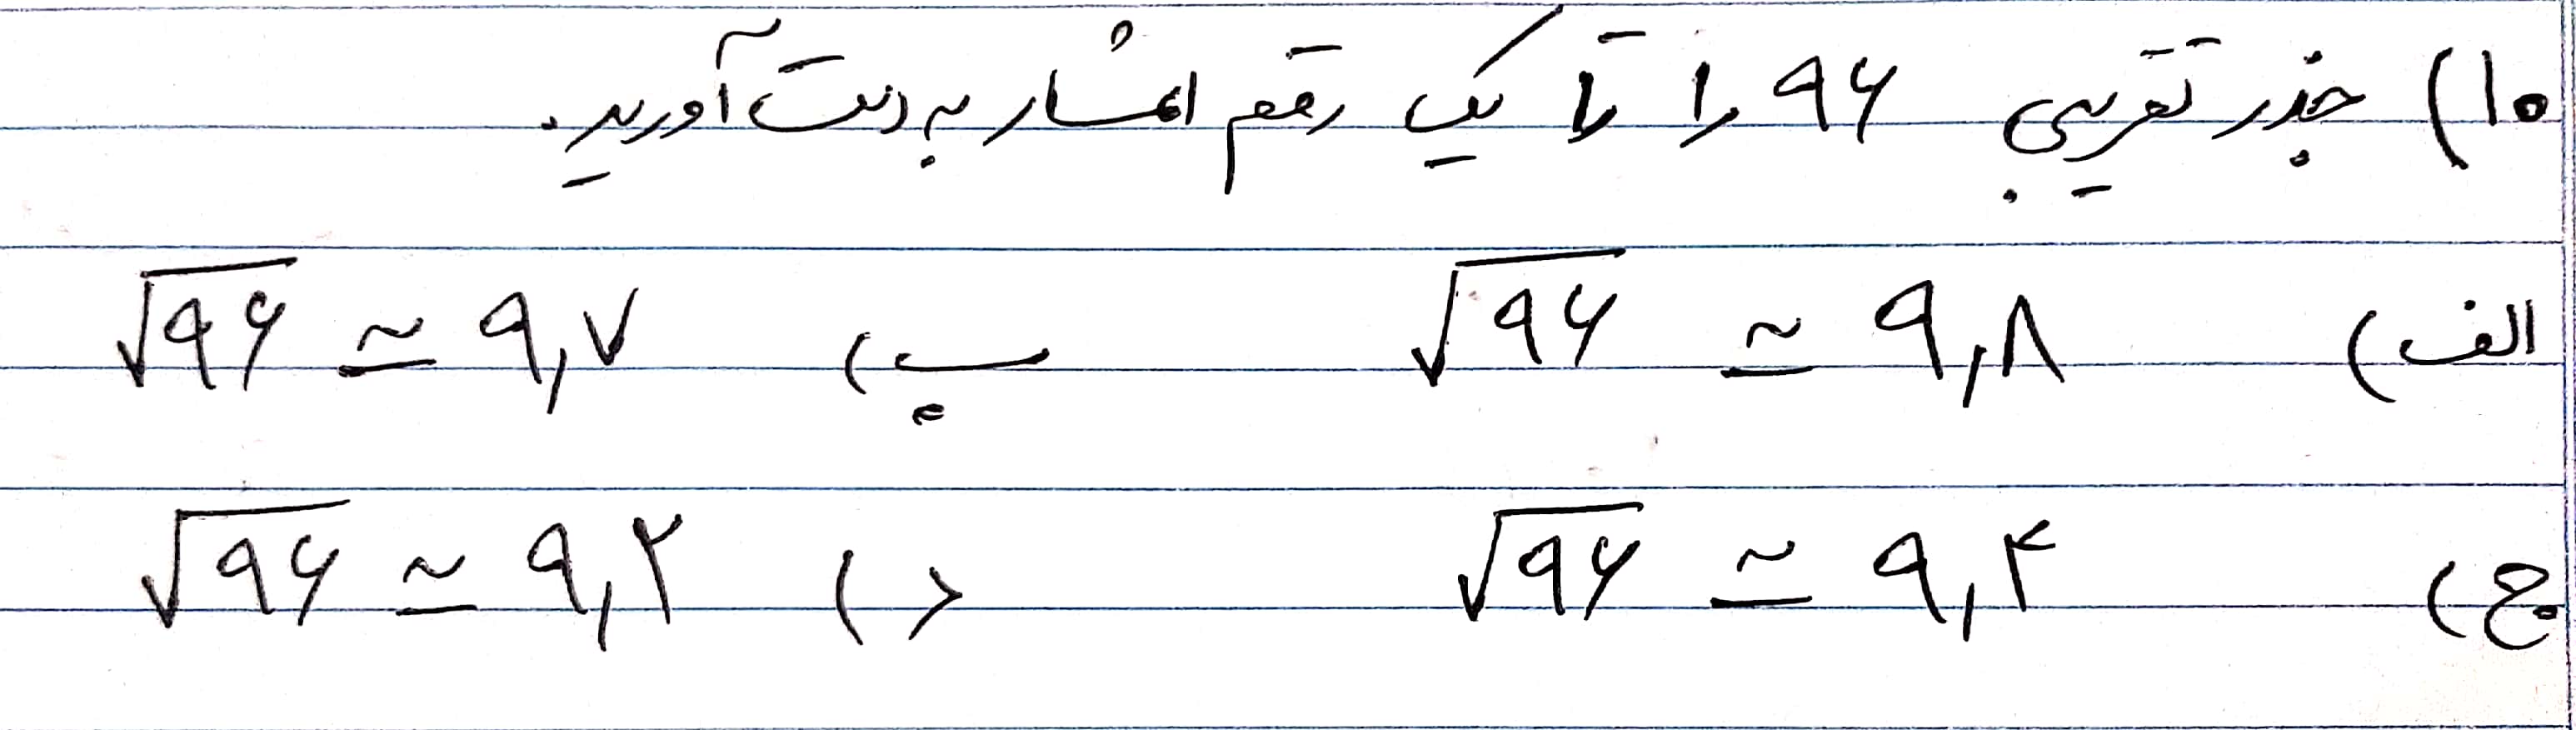 ۱۰) جذر تقریبی ۹۶ را تا یک رقم اعشار به دست آورید.
الف) √۹۶ ≃ ۹٫۸ ب) √۹۶ ≃ ۹٫۷
ج) √۹۶ ≃ ۹٫۴ د) √۹۶ ≃ ۹٫۲